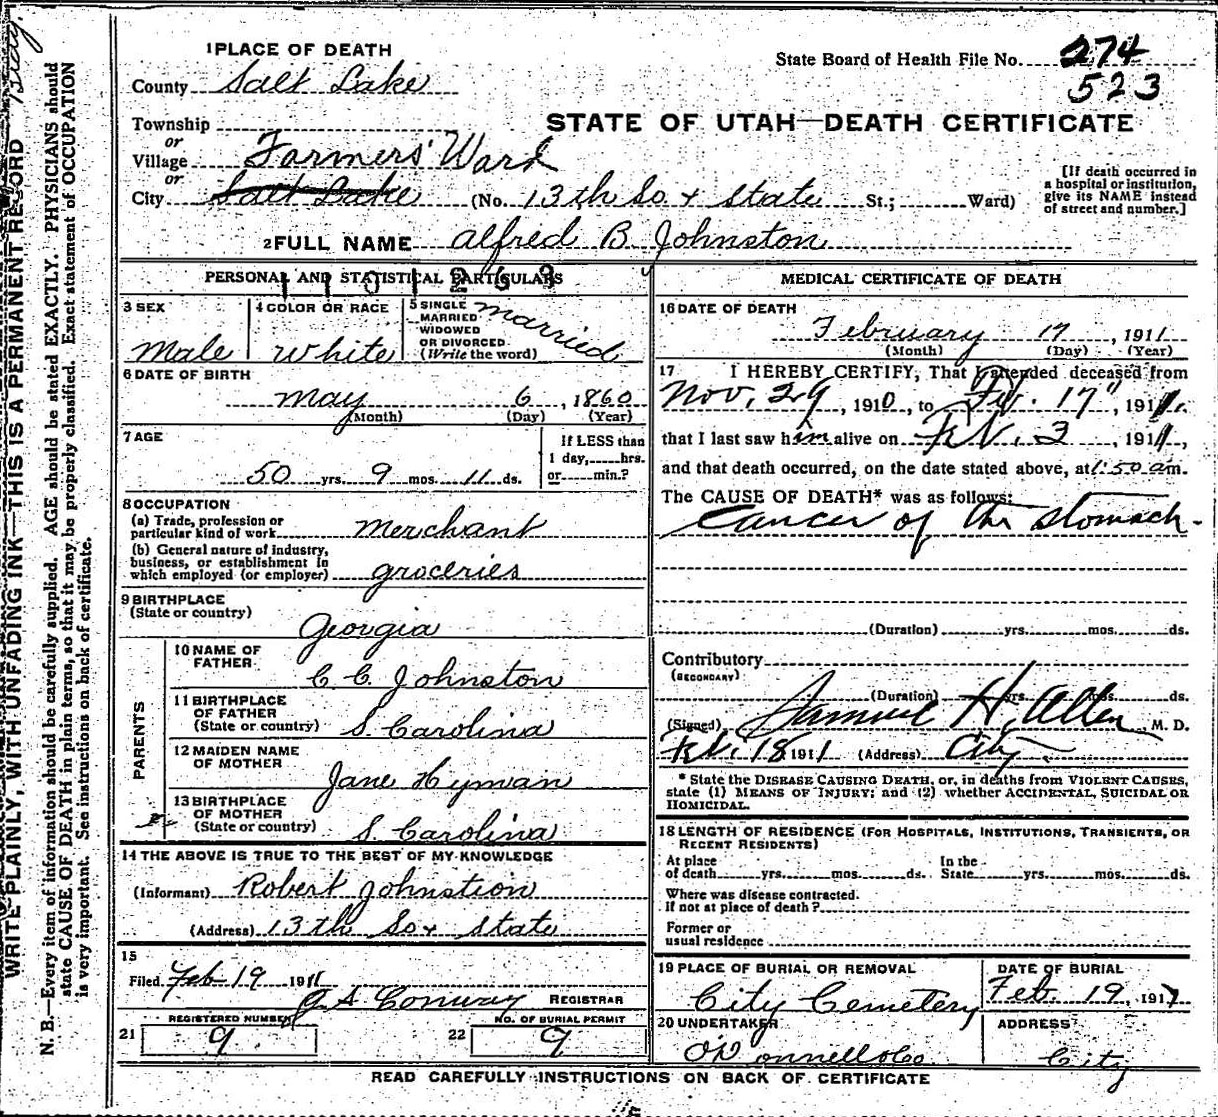 1 PLACE OF DEATH
County Salt Lake
State Board of Health File No. 274
523
Township
or
Village Farmers' Ward
or
City Salt Lake (No. 13th So + State St.; Ward)
STATE OF UTAH—DEATH CERTIFICATE
[If death occurred in
a hospital or institution,
give its NAME instead
of street and number.]
2 FULL NAME Alfred B. Johnston
PERSONAL AND STATISTICAL PARTICULARS
3 SEX
Male
4 COLOR OR RACE
White
5 SINGLE
MARRIED
WIDOWED
OR DIVORCED
(Write the word)
Married
6 DATE OF BIRTH
May 6, 1860
(Month) (Day) (Year)
7 AGE
50 yrs. 9 mos. 11 ds.
If LESS than
1 day, hrs.
or min.?
8 OCCUPATION
(a) Trade, profession or
particular kind of work Merchant
(b) General nature of industry,
business, or establishment in
which employed (or employer) groceries
9 BIRTHPLACE
(State or country)
Georgia
PARENTS
10 NAME OF
FATHER
C C Johnston
11 BIRTHPLACE
OF FATHER
(State or country) S. Carolina
12 MAIDEN NAME
OF MOTHER
Jane Hyman
13 BIRTHPLACE
OF MOTHER
(State or country) S. Carolina
14 THE ABOVE IS TRUE TO THE BEST OF MY KNOWLEDGE
(Informant) Robert Johnstion
(Address) 13th So + State
15
Filed Feb 19 1911
REGISTRAR
REGISTERED NUMBER
21 9
NO. OF BURIAL PERMIT
22 9
MEDICAL CERTIFICATE OF DEATH
16 DATE OF DEATH
February 17, 1911
(Month) (Day) (Year)
17 I HEREBY CERTIFY, That I attended deceased from
Nov. 29, 1910, to Feb. 17", 1911.
that I last saw him alive on Feb. 3, 1911,
and that death occurred, on the date stated above, at 1:50 am.
The CAUSE OF DEATH* was as follows:
Cancer of the stomach.
(Duration) yrs. mos. ds.
Contributory
(SECONDARY)
(Duration) yrs. mos. ds.
(Signed) Samuel H. Allen, M. D.
Feb. 18 1911 (Address) City
* State the DISEASE CAUSING DEATH, or, in deaths from VIOLENT CAUSES,
state (1) MEANS OF INJURY; and (2) whether ACCIDENTAL, SUICIDAL OR
HOMICIDAL.
18 LENGTH OF RESIDENCE (FOR HOSPITALS, INSTITUTIONS, TRANSIENTS, OR
RECENT RESIDENTS)
At place
of death yrs. mos. ds.
In the
State yrs. mos. ds.
Where was disease contracted.
If not at place of death?
Former or
usual residence
19 PLACE OF BURIAL OR REMOVAL
City Cemetery
DATE OF BURIAL
Feb. 19, 1911
20 UNDERTAKER
ADDRESS
City
READ CAREFULLY INSTRUCTIONS ON BACK OF CERTIFICATE
WRITE PLAINLY, WITH UNFADING INK—THIS IS A PERMANENT RECORD
N. B.—Every item of information should be carefully supplied. AGE should be stated EXACTLY. PHYSICIANS should
state CAUSE OF DEATH in plain terms, so that it may be properly classified. Exact statement of OCCUPATION
is very important. See instructions on back of certificate.